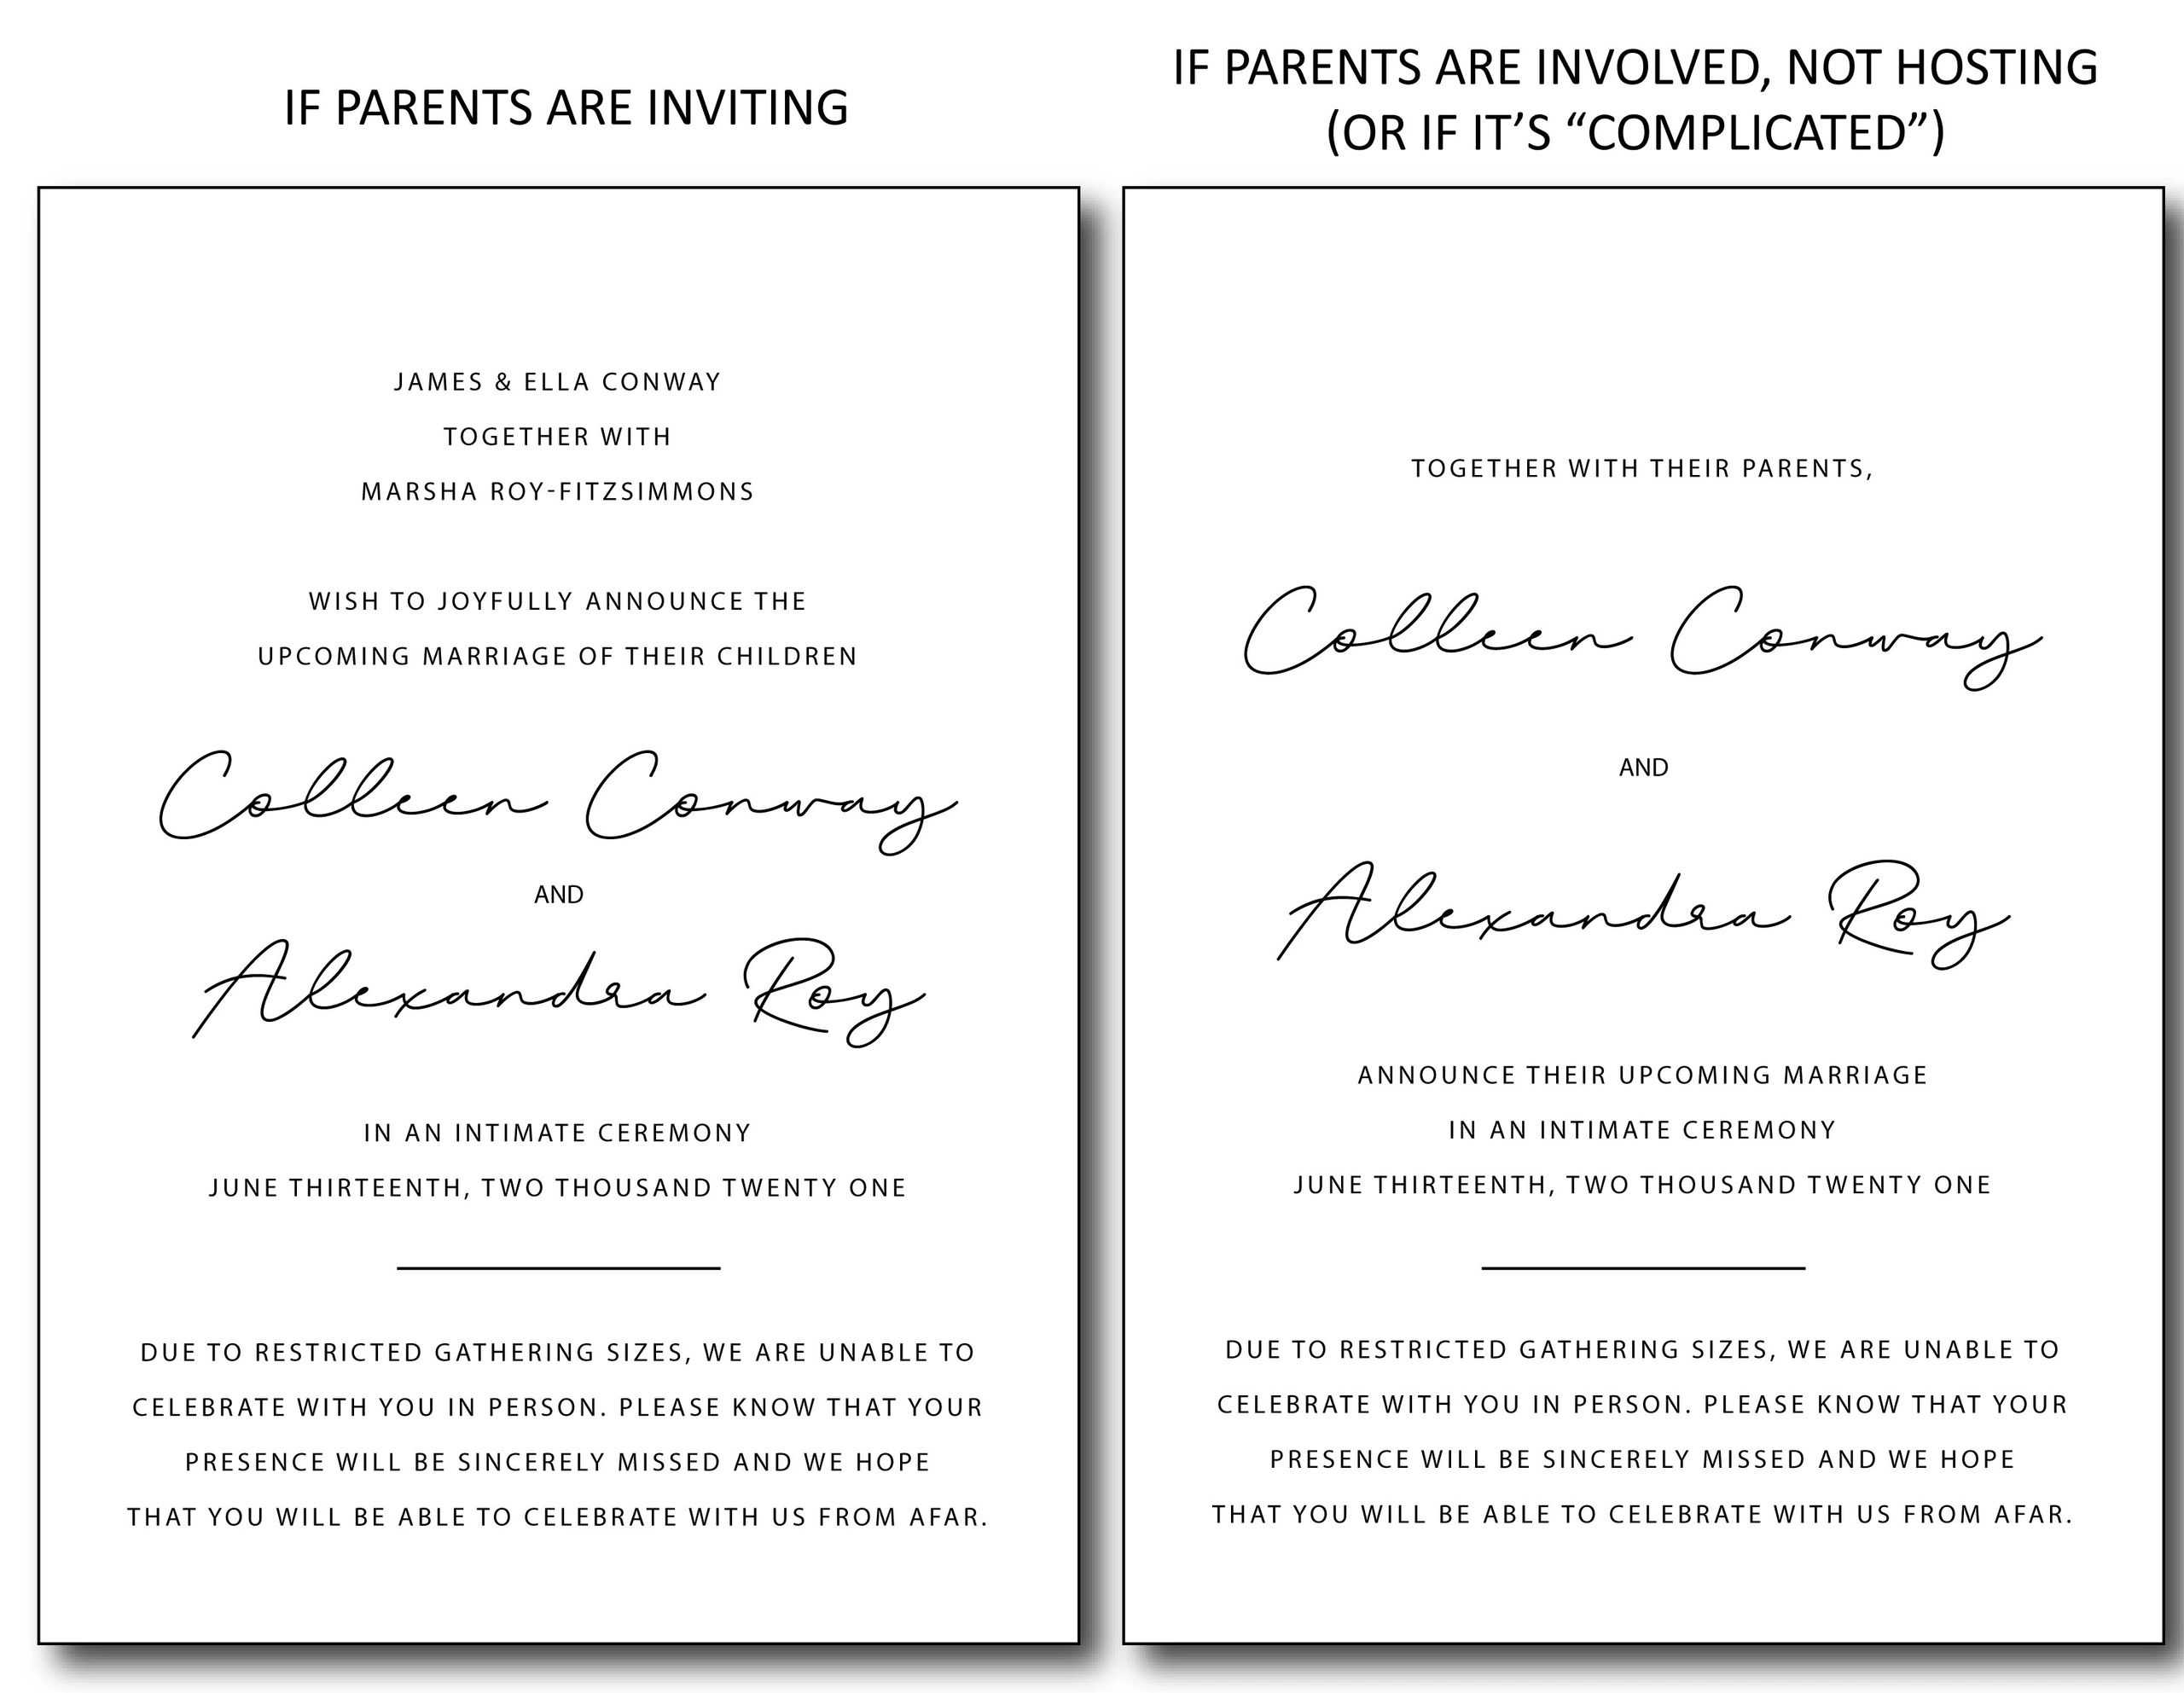 IF PARENTS ARE INVITING
JAMES & ELLA CONWAY
TOGETHER WITH
MARSHA ROY-FITZSIMMONS
WISH TO JOYFULLY ANNOUNCE THE
UPCOMING MARRIAGE OF THEIR CHILDREN
Colleen Conway
AND
Alexandra Roy
IN AN INTIMATE CEREMONY
JUNE THIRTEENTH, TWO THOUSAND TWENTY ONE
DUE TO RESTRICTED GATHERING SIZES, WE ARE UNABLE TO
CELEBRATE WITH YOU IN PERSON. PLEASE KNOW THAT YOUR
PRESENCE WILL BE SINCERELY MISSED AND WE HOPE
THAT YOU WILL BE ABLE TO CELEBRATE WITH US FROM AFAR.
IF PARENTS ARE INVOLVED, NOT HOSTING
(OR IF IT’S “COMPLICATED”)
TOGETHER WITH THEIR PARENTS,
Colleen Conway
AND
Alexandra Roy
ANNOUNCE THEIR UPCOMING MARRIAGE
IN AN INTIMATE CEREMONY
JUNE THIRTEENTH, TWO THOUSAND TWENTY ONE
DUE TO RESTRICTED GATHERING SIZES, WE ARE UNABLE TO
CELEBRATE WITH YOU IN PERSON. PLEASE KNOW THAT YOUR
PRESENCE WILL BE SINCERELY MISSED AND WE HOPE
THAT YOU WILL BE ABLE TO CELEBRATE WITH US FROM AFAR.